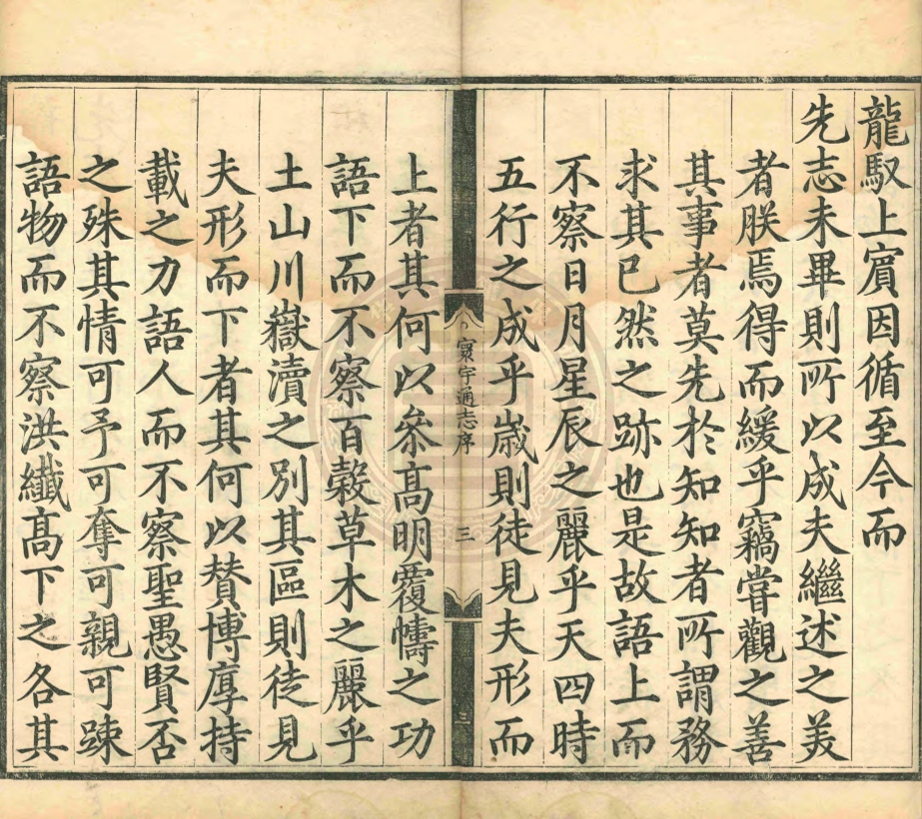 龍馭上賔因循至今而
先志未畢則所以成夫繼述之美
者朕焉得而緩乎竊甞觀之善
其事者莫先於知知者所謂務
求其已然之跡也是故語上而
不察日月星辰之麗乎天四時
五行之成乎歲則徒見夫形而
寰宇通志序
三
三
上者其何以叅髙明覆幬之功
語下而不察百榖草木之麗乎
土山川嶽瀆之別其區則徒見
夫形而下者其何以賛博厚持
載之力語人而不察聖愚賢否
之殊其情可予可奪可親可踈
語物而不察洪纖髙下之各其